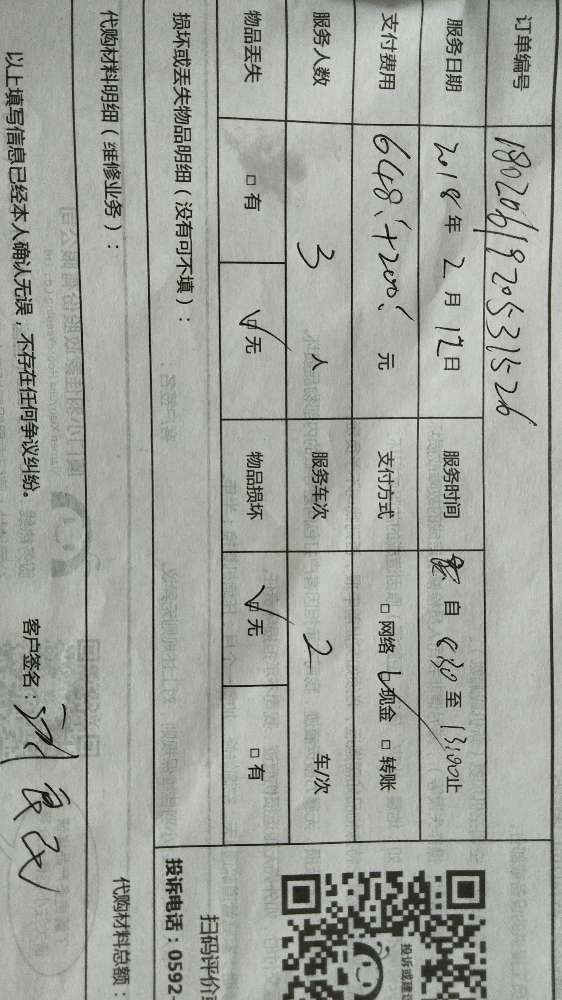 订单编号 1802061920531526
服务日期 2018年2月12日 服务时间 自 至 13:00止
支付费用 648.+200. 元 支付方式 □网络 ☑现金 □转账
服务人数 3 人 服务车次 2 车/次
物品丢失 □有 ☑无 物品损坏 ☑无 □有
损坏或丢失物品明细（没有可不填）：
代购材料明细（维修业务）：
代购材料总额：
以上填写信息已经本人确认无误，不存在任何争议纠纷。 客户签名：
投诉或建议
扫码评价
投诉电话：0592-